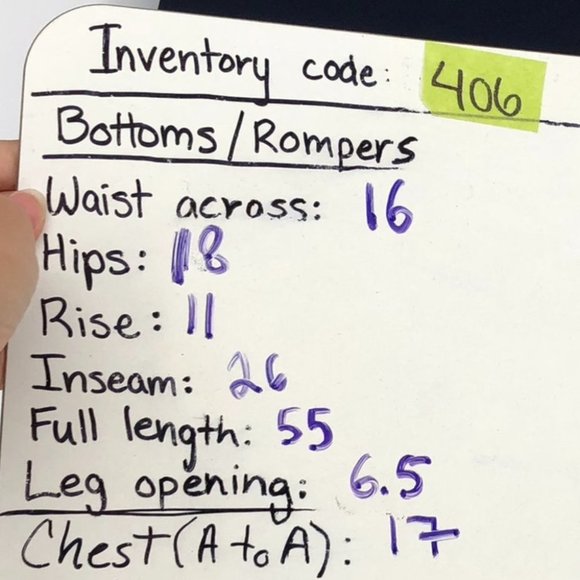 Inventory code: 406
Bottoms/Rompers
Waist across: 16
Hips: 18
Rise: 11
Inseam: 26
Full length: 55
Leg opening: 6.5
Chest (A to A): 17